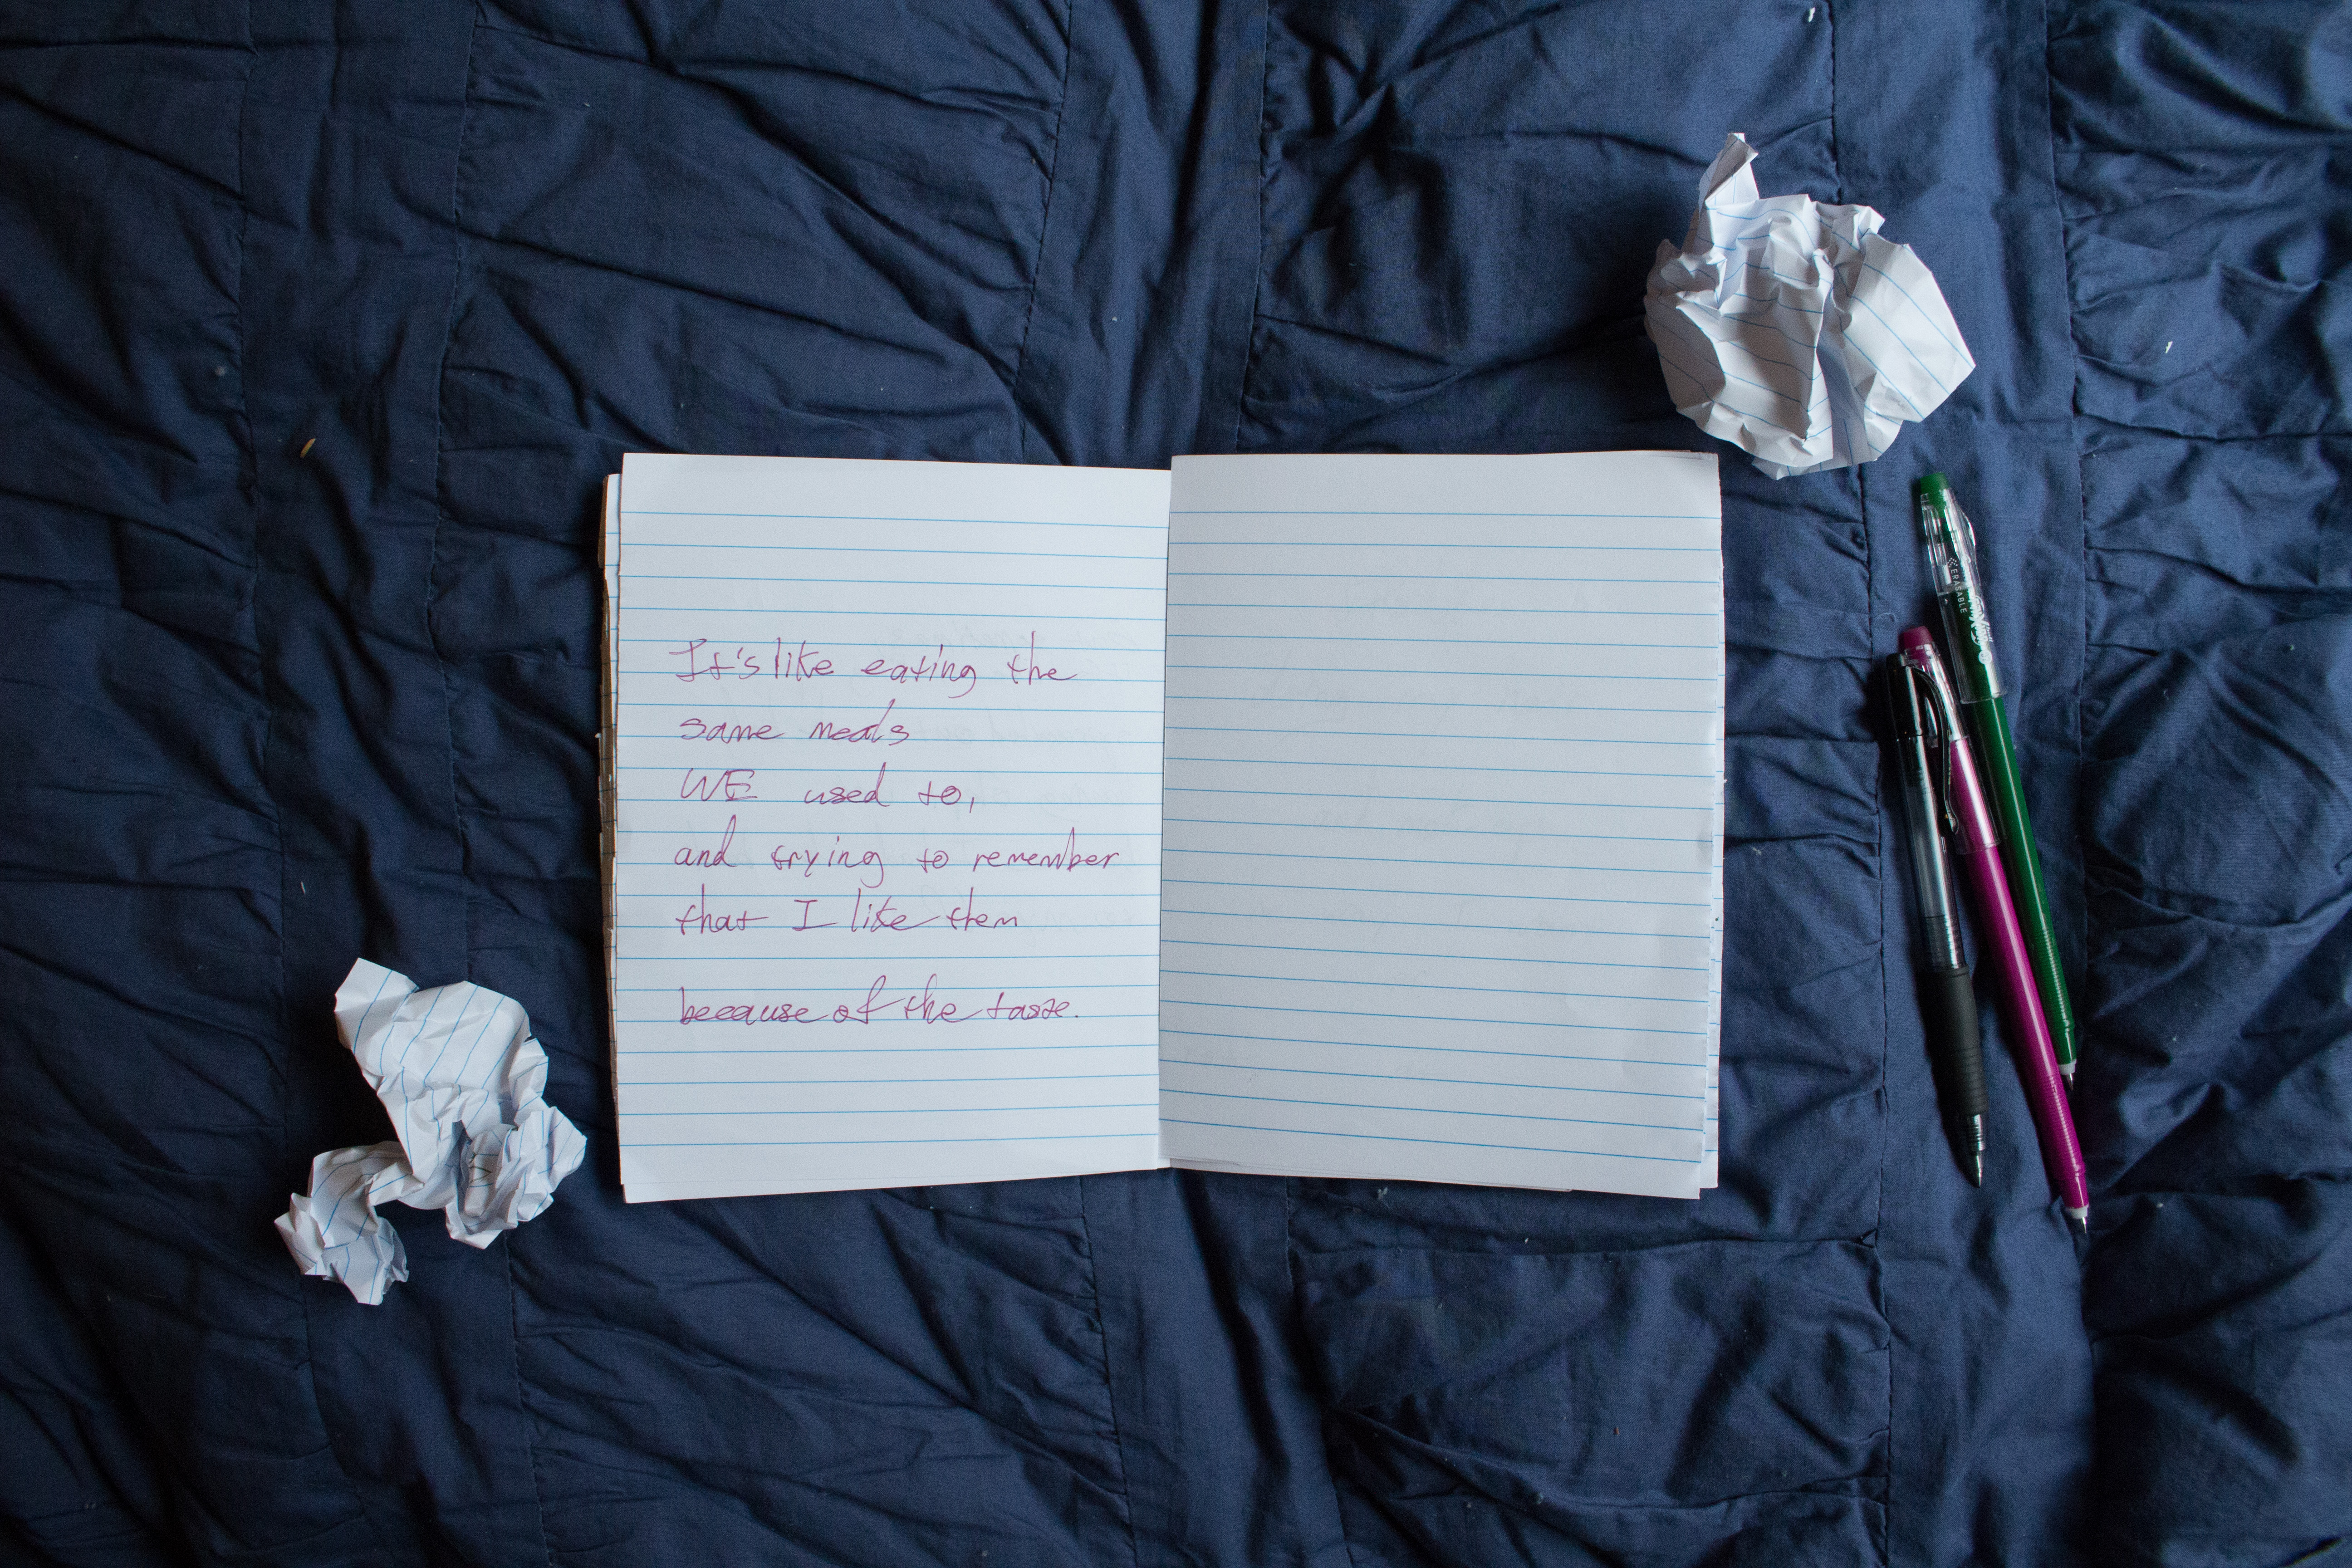 It's like eating the
same meals
WE used to,
and trying to remember
that I like them
because of the taste.
ERASABLE